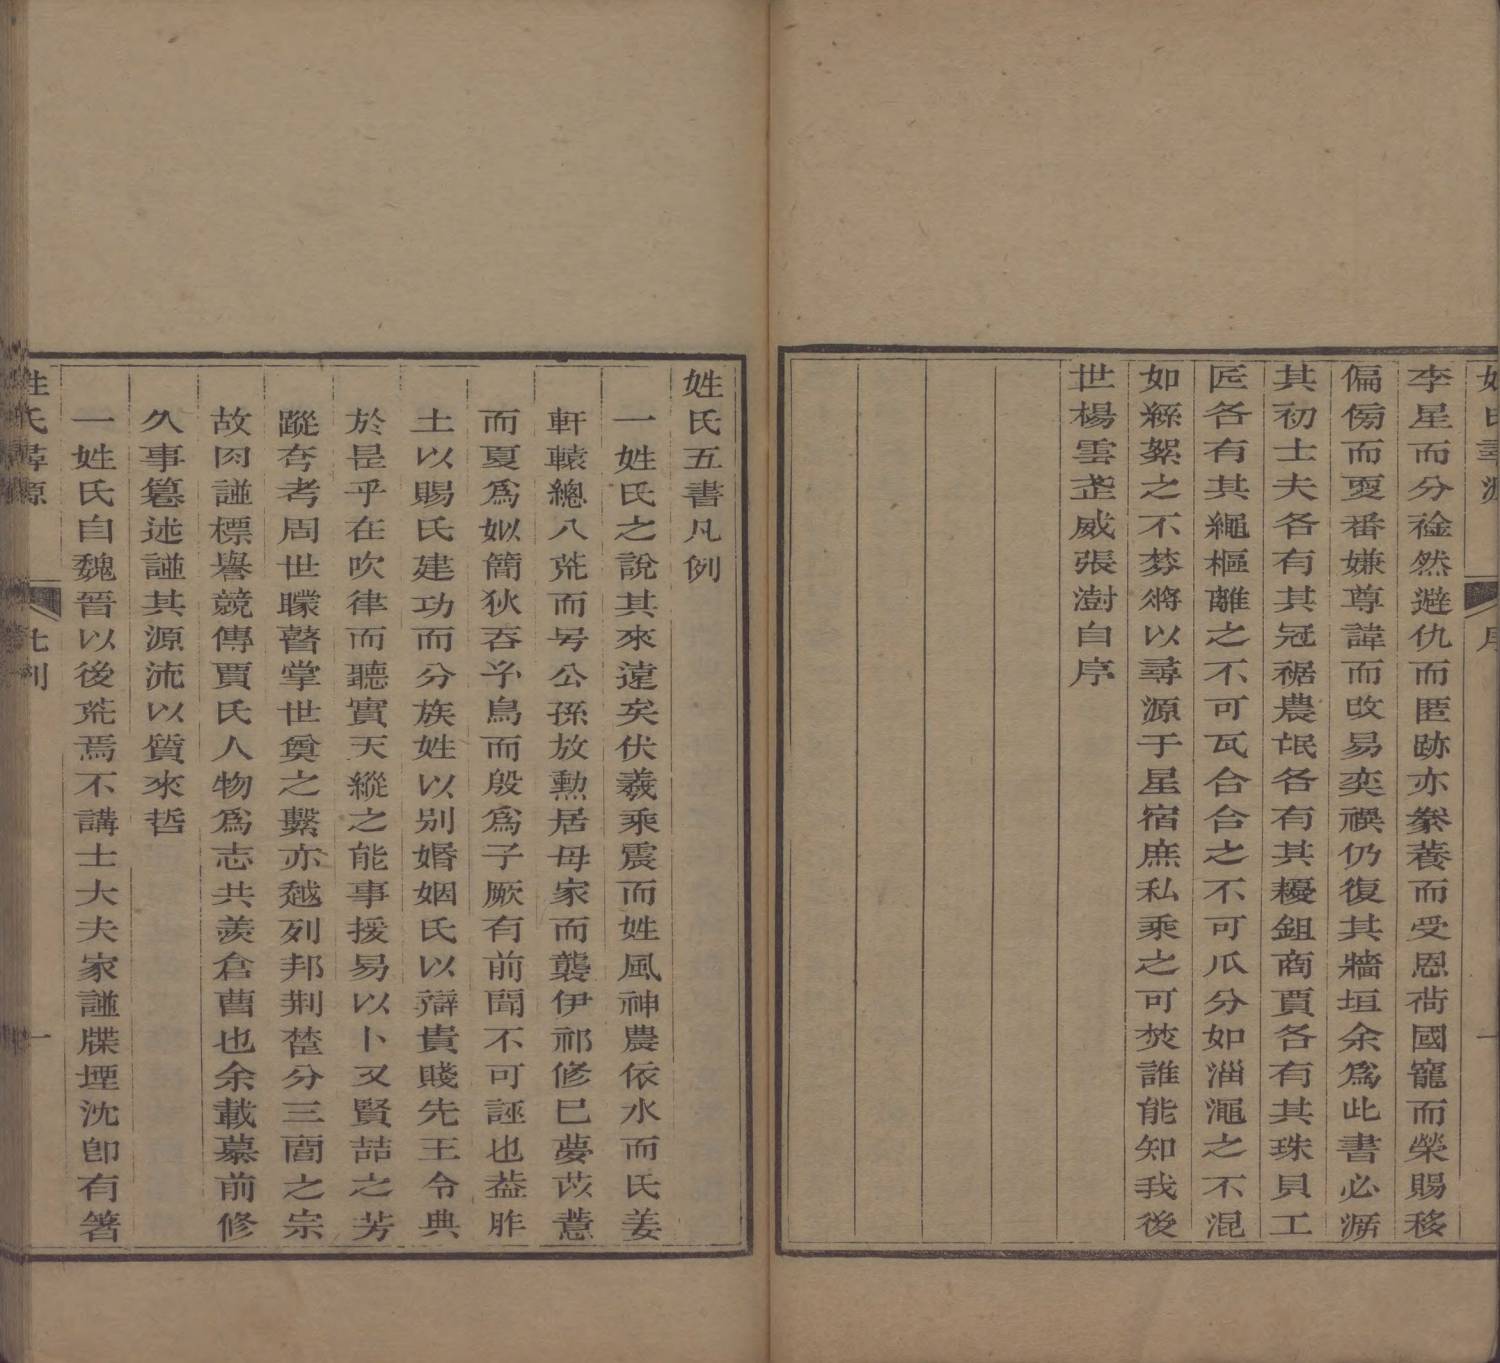 姓氏尋源
序
一
李星而分硂然避仇而匿跡亦豢養而受恩荷國寵而榮賜移
偏傍而更番嫌尊諱而改易奕禩仍復其牆垣余爲此書必溯
其初士夫各有其冠裾農氓各有其耰鉏商賈各有其珠貝工
匠各有其繩樞離之不可瓦合合之不可瓜分如淄澠之不混
如絲絮之不棼將以尋源于星宿庶私乘之可焚誰能知我後
世楊雲武威張澍自序
姓氏五書凡例
一姓氏之說其來遠矣伏羲乘震而姓風神農依水而氏姜
軒轅總八荒而号公孫放勳居母家而襲伊祁修巳夢苡薏
而夏爲姒簡狄吞予鳥而殷爲子厥有前聞不可誣也葢胙
土以賜氏建功而分族姓以別婚姻氏以辯貴賤先王令典
於是乎在吹律而聽實天縱之能事援易以卜又賢喆之芳
蹤夸考周世矇瞽掌世奠之繫亦越列邦荆楚分三閭之宗
故肉譜標譽競傳賈氏人物爲志共羨倉曹也余載慕前修
久事篹述譜其源流以質來哲
一姓氏自魏晉以後荒焉不講士大夫家譜牒堙沈卽有箸
姓氏尋源
凡例
一